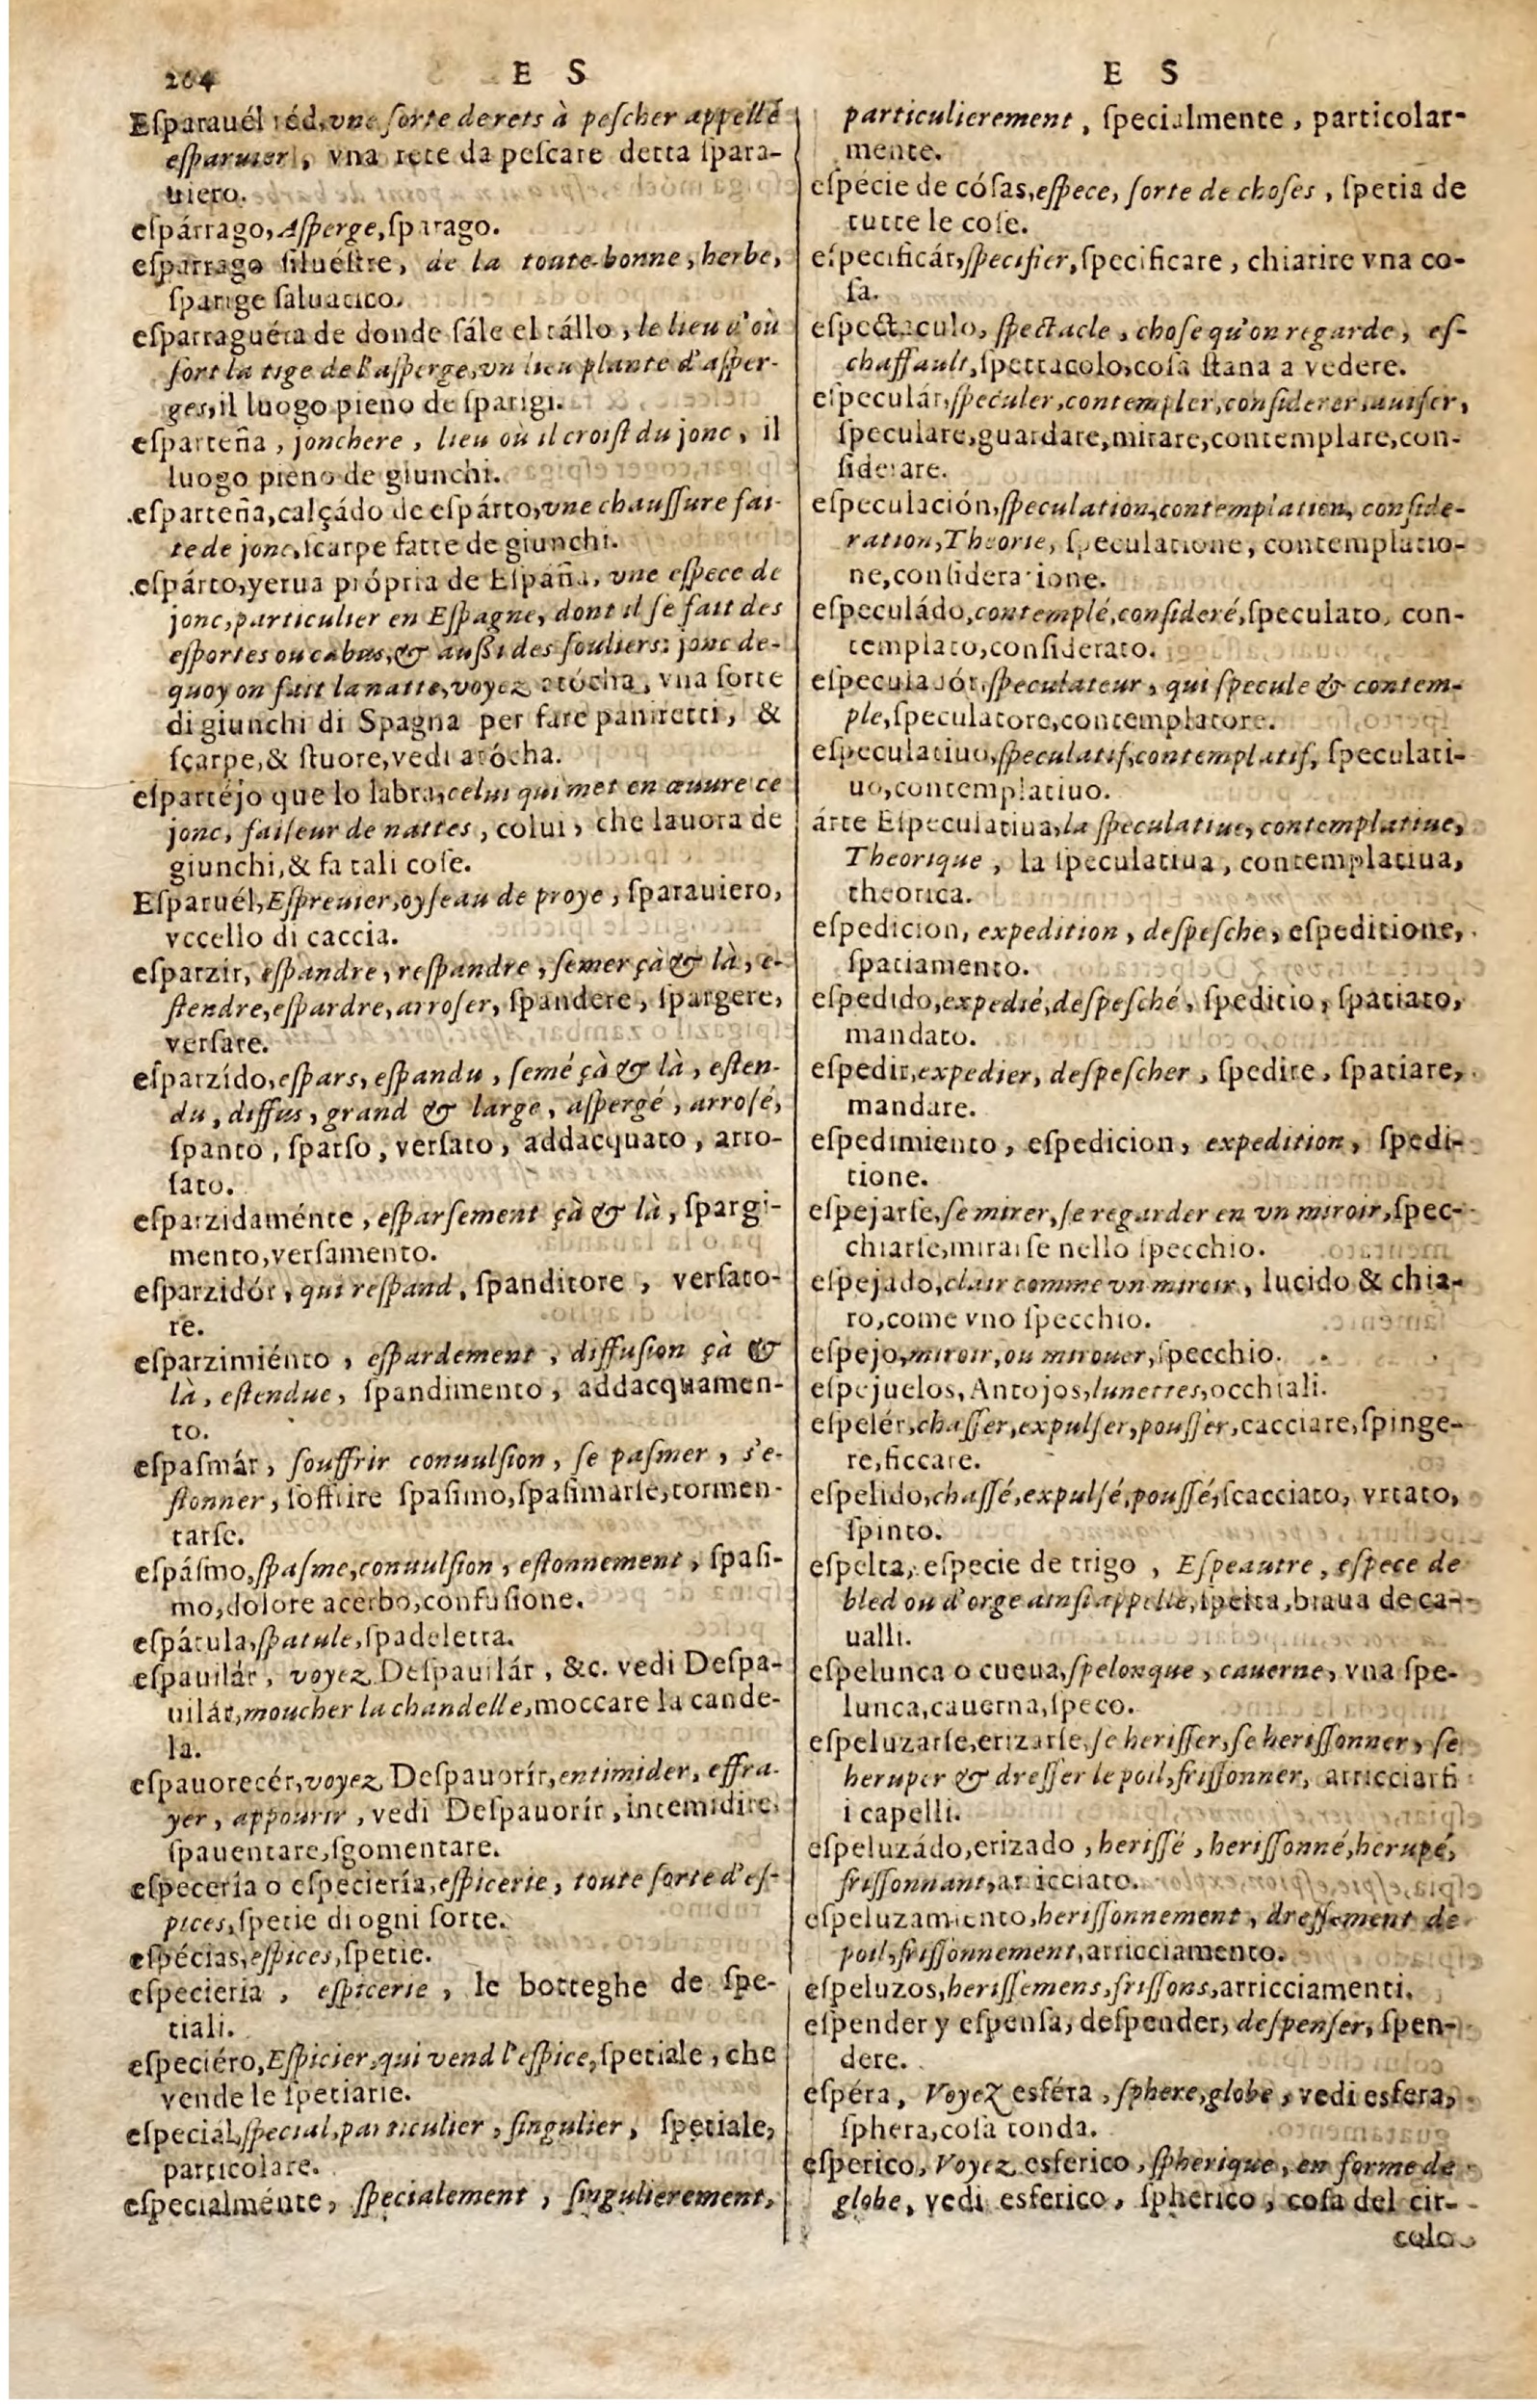 204 E S
Eſparauél réd, vne ſorte de rets à peſcher appellé
eſparuier, vna rete da peſcare detta ſpara-
uiero.
eſpárrago, Aſperge, ſparago.
eſparrago ſilueſtre, de la toute-bonne, herbe,
ſparige ſaluatico.
eſparraguéra de donde ſále el tállo, le lieu d'où
ſort la tige de l'aſperge, vn lieu plante d'aſper-
ges, il luogo pieno de ſparigi.
eſparteña, jonchere, lieu où il croiſt du jonc, il
luogo pieno de giunchi.
eſparteña, calçádo de eſpárto, vne chauſſure fai-
te de jonc, ſcarpe fatte de giunchi.
eſpárto, yerua própria de Eſpáña, vne eſpece de
jonc, particulier en Eſpagne, dont il ſe fait des
eſportes ou cabas, & auſſi des ſouliers: jonc de-
quoy on fait la natte, voyez atócha, vna ſorte
di giunchi di Spagna per fare paniretti, &
ſcarpe, & ſtuore, vedi atócha.
eſpartéjo que lo labra, celui qui met en œuure ce
jonc, faiſeur de nattes, colui, che lauora de
giunchi, & fa tali coſe.
Eſparuél, Eſpreuier, oyſeau de proye, ſparauiero,
vccello di caccia.
eſparzir, eſpandre, reſpandre, ſemer çà & là, e-
ſtendre, eſpardre, arroſer, ſpandere, ſpargere,
verſare.
eſparzído, eſpars, eſpandu, ſemé çà & là, eſten-
du, diffus, grand & large, aſpergé, arroſé,
ſpanto, ſparſo, verſato, addacquato, arro-
ſato.
eſparzidaménte, eſparſement çà & là, ſpargi-
mento, verſamento.
eſparzidór, qui reſpand, ſpanditore, verſato-
re.
eſparzimiénto, eſpardement, diffuſion çà &
là, eſtendue, ſpandimento, addacquamen-
to.
eſpaſmár, ſouffrir conuulſion, ſe paſmer, s'e-
ſtonner, ſoffrire ſpaſimo, ſpaſimarſe, tormen-
tarſe.
eſpáſmo, ſpaſme, conuulſion, eſtonnement, ſpaſi-
mo, dolore acerbo, confuſione.
eſpátula, ſpatule, ſpadeletta.
eſpauilár, voyez Deſpauilár, &c. vedi Deſpa-
uilár, moucher la chandelle, moccare la cande-
la.
eſpauorecér, voyez Deſpauorír, entimider, effra-
yer, appourir, vedi Deſpauorír, intemidire,
ſpauentare, ſgomentare.
eſpecería o eſpeciería, eſpicerie, toute ſorte d'eſ-
pices, ſpetie di ogni ſorte.
eſpécias, eſpices, ſpetie.
eſpecieria, eſpicerie, le botteghe de ſpe-
tiali.
eſpeciéro, Eſpicier, qui vend l'eſpice, ſpetiale, che
vende le ſpetiarie.
eſpecial, ſpecial, particulier, ſingulier, ſpetiale,
particolare.
eſpecialménte, ſpecialement, ſingulierement,
E S
particulierement, ſpecialmente, particolar-
mente.
eſpécie de cóſas, eſpece, ſorte de choſes, ſpetia de
tutte le coſe.
eſpecificár, ſpecifier, ſpecificare, chiarire vna co-
ſa.
eſpectaculo, ſpectacle, choſe qu'on regarde, eſ-
chaffault, ſpettacolo, coſa ſtana a vedere.
eſpeculár, ſpeculer, contempler, conſiderer, auiſer,
ſpeculare, guardare, mirare, contemplare, con-
ſiderare.
eſpeculación, ſpeculation, contemplation, conſide-
ration, Theorie, ſpeculatione, contemplatio-
ne, conſideratione.
eſpeculádo, contemplé, conſideré, ſpeculato, con-
templato, conſiderato.
eſpeculadór, ſpeculateur, qui ſpecule & contem-
ple, ſpeculatore, contemplatore.
eſpeculatiuo, ſpeculatif, contemplatif, ſpeculati-
uo, contemplatiuo.
árte Eſpeculatiua, la ſpeculatiue, contemplatiue,
Theorique, la ſpeculatiua, contemplatiua,
theorica.
eſpedicion, expedition, deſpeſche, eſpeditione,
ſpaciamento.
eſpedido, expedié, deſpeſché, ſpeditio, ſpatiato,
mandato.
eſpedir, expedier, deſpeſcher, ſpedire, ſpatiare,
mandare.
eſpedimiento, eſpedicion, expedition, ſpedi-
tione.
eſpejarſe, ſe mirer, ſe regarder en vn miroir, ſpec-
chiarſe, mirarſe nello ſpecchio.
eſpejado, clair comme vn miroir, lucido & chia-
ro, come vno ſpecchio.
eſpejo, miroir, ou mirouer, ſpecchio.
eſpejuelos, Antojos, lunettes, occhiali.
eſpelér, chaſſer, expulſer, pouſſer, cacciare, ſpinge-
re, ficcare.
eſpelido, chaſſé, expulſé, pouſſé, ſcacciato, vrtato,
ſpinto.
eſpelta, eſpecie de trigo, Eſpeautre, eſpece de
bled ou d'orge ainſi appellé, ſpelta, biaua de ca-
ualli.
eſpelunca o cueua, ſpelonque, cauerne, vna ſpe-
lunca, cauerna, ſpeco.
eſpeluzarſe, erizarſe, ſe heriſſer, ſe heriſſonner, ſe
heruper & dreſſer le poil, friſſonner, arricciarſi
i capelli.
eſpeluzádo, erizado, heriſſé, heriſſonné, herupé,
friſſonnant, arricciato.
eſpeluzamiento, heriſſonnement, dreſſement de
poil, friſſonnement, arricciamento.
eſpeluzos, heriſſemens, friſſons, arricciamenti.
eſpender y eſpenſa, deſpender, deſpenſer, ſpen-
dere.
eſpéra, Voyez esféra, ſphere, globe, vedi esfera,
ſphera, coſa tonda.
eſperico, Voyez esferico, ſpherique, en forme de
globe, vedi esferico, ſpherico, coſa del cir-
culo.